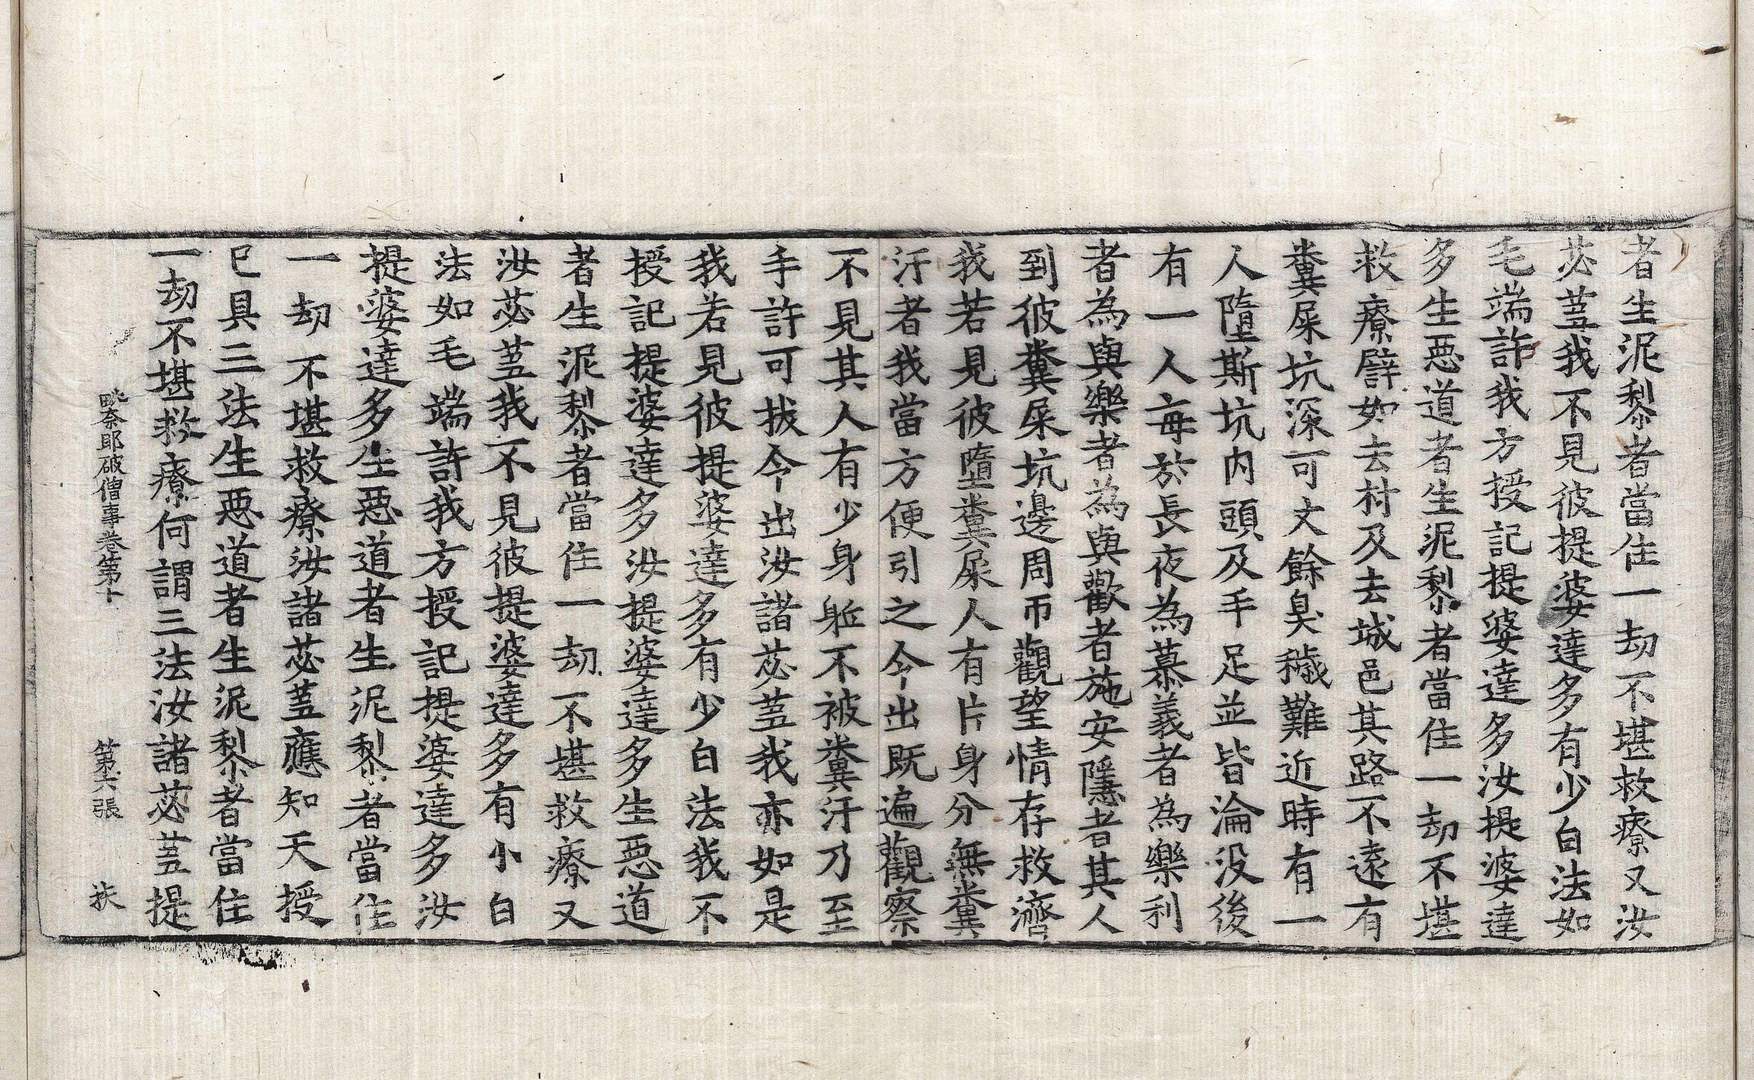 者生泥黎者當住一劫不堪救療又汝
苾蒭我不見彼提婆達多有少白法如
毛端許我方授記提婆達多汝提婆達
多生惡道者生泥黎者當住一劫不堪
救療譬如去村及去城邑其路不遠有
糞屎坑深可丈餘臭穢難近時有一
人墮斯坑內頭及手足並皆淪沒後
有一人每於長夜為慕義者為樂利
者為與樂者為與歡者施安隱者其人
到彼糞屎坑邊周帀觀望情存救濟
我若見彼墮糞屎人有片身分無糞
汙者我當方便引之令出既遍觀察
不見其人有少身䠶不被糞汙乃至
手許可拔令出汝諸苾蒭我亦如是
我若見彼提婆達多有少白法我不
授記提婆達多汝提婆達多生惡道
者生泥黎者當住一劫不堪救療又
汝苾蒭我不見彼提婆達多有小白
法如毛端許我方授記提婆達多汝
提婆達多生惡道者生泥黎者當住
一劫不堪救療汝諸苾蒭應知天授
已具三法生惡道者生泥黎者當住
一劫不堪救療何謂三法汝諸苾蒭提
毗奈耶破僧事卷第十 第六張 扶